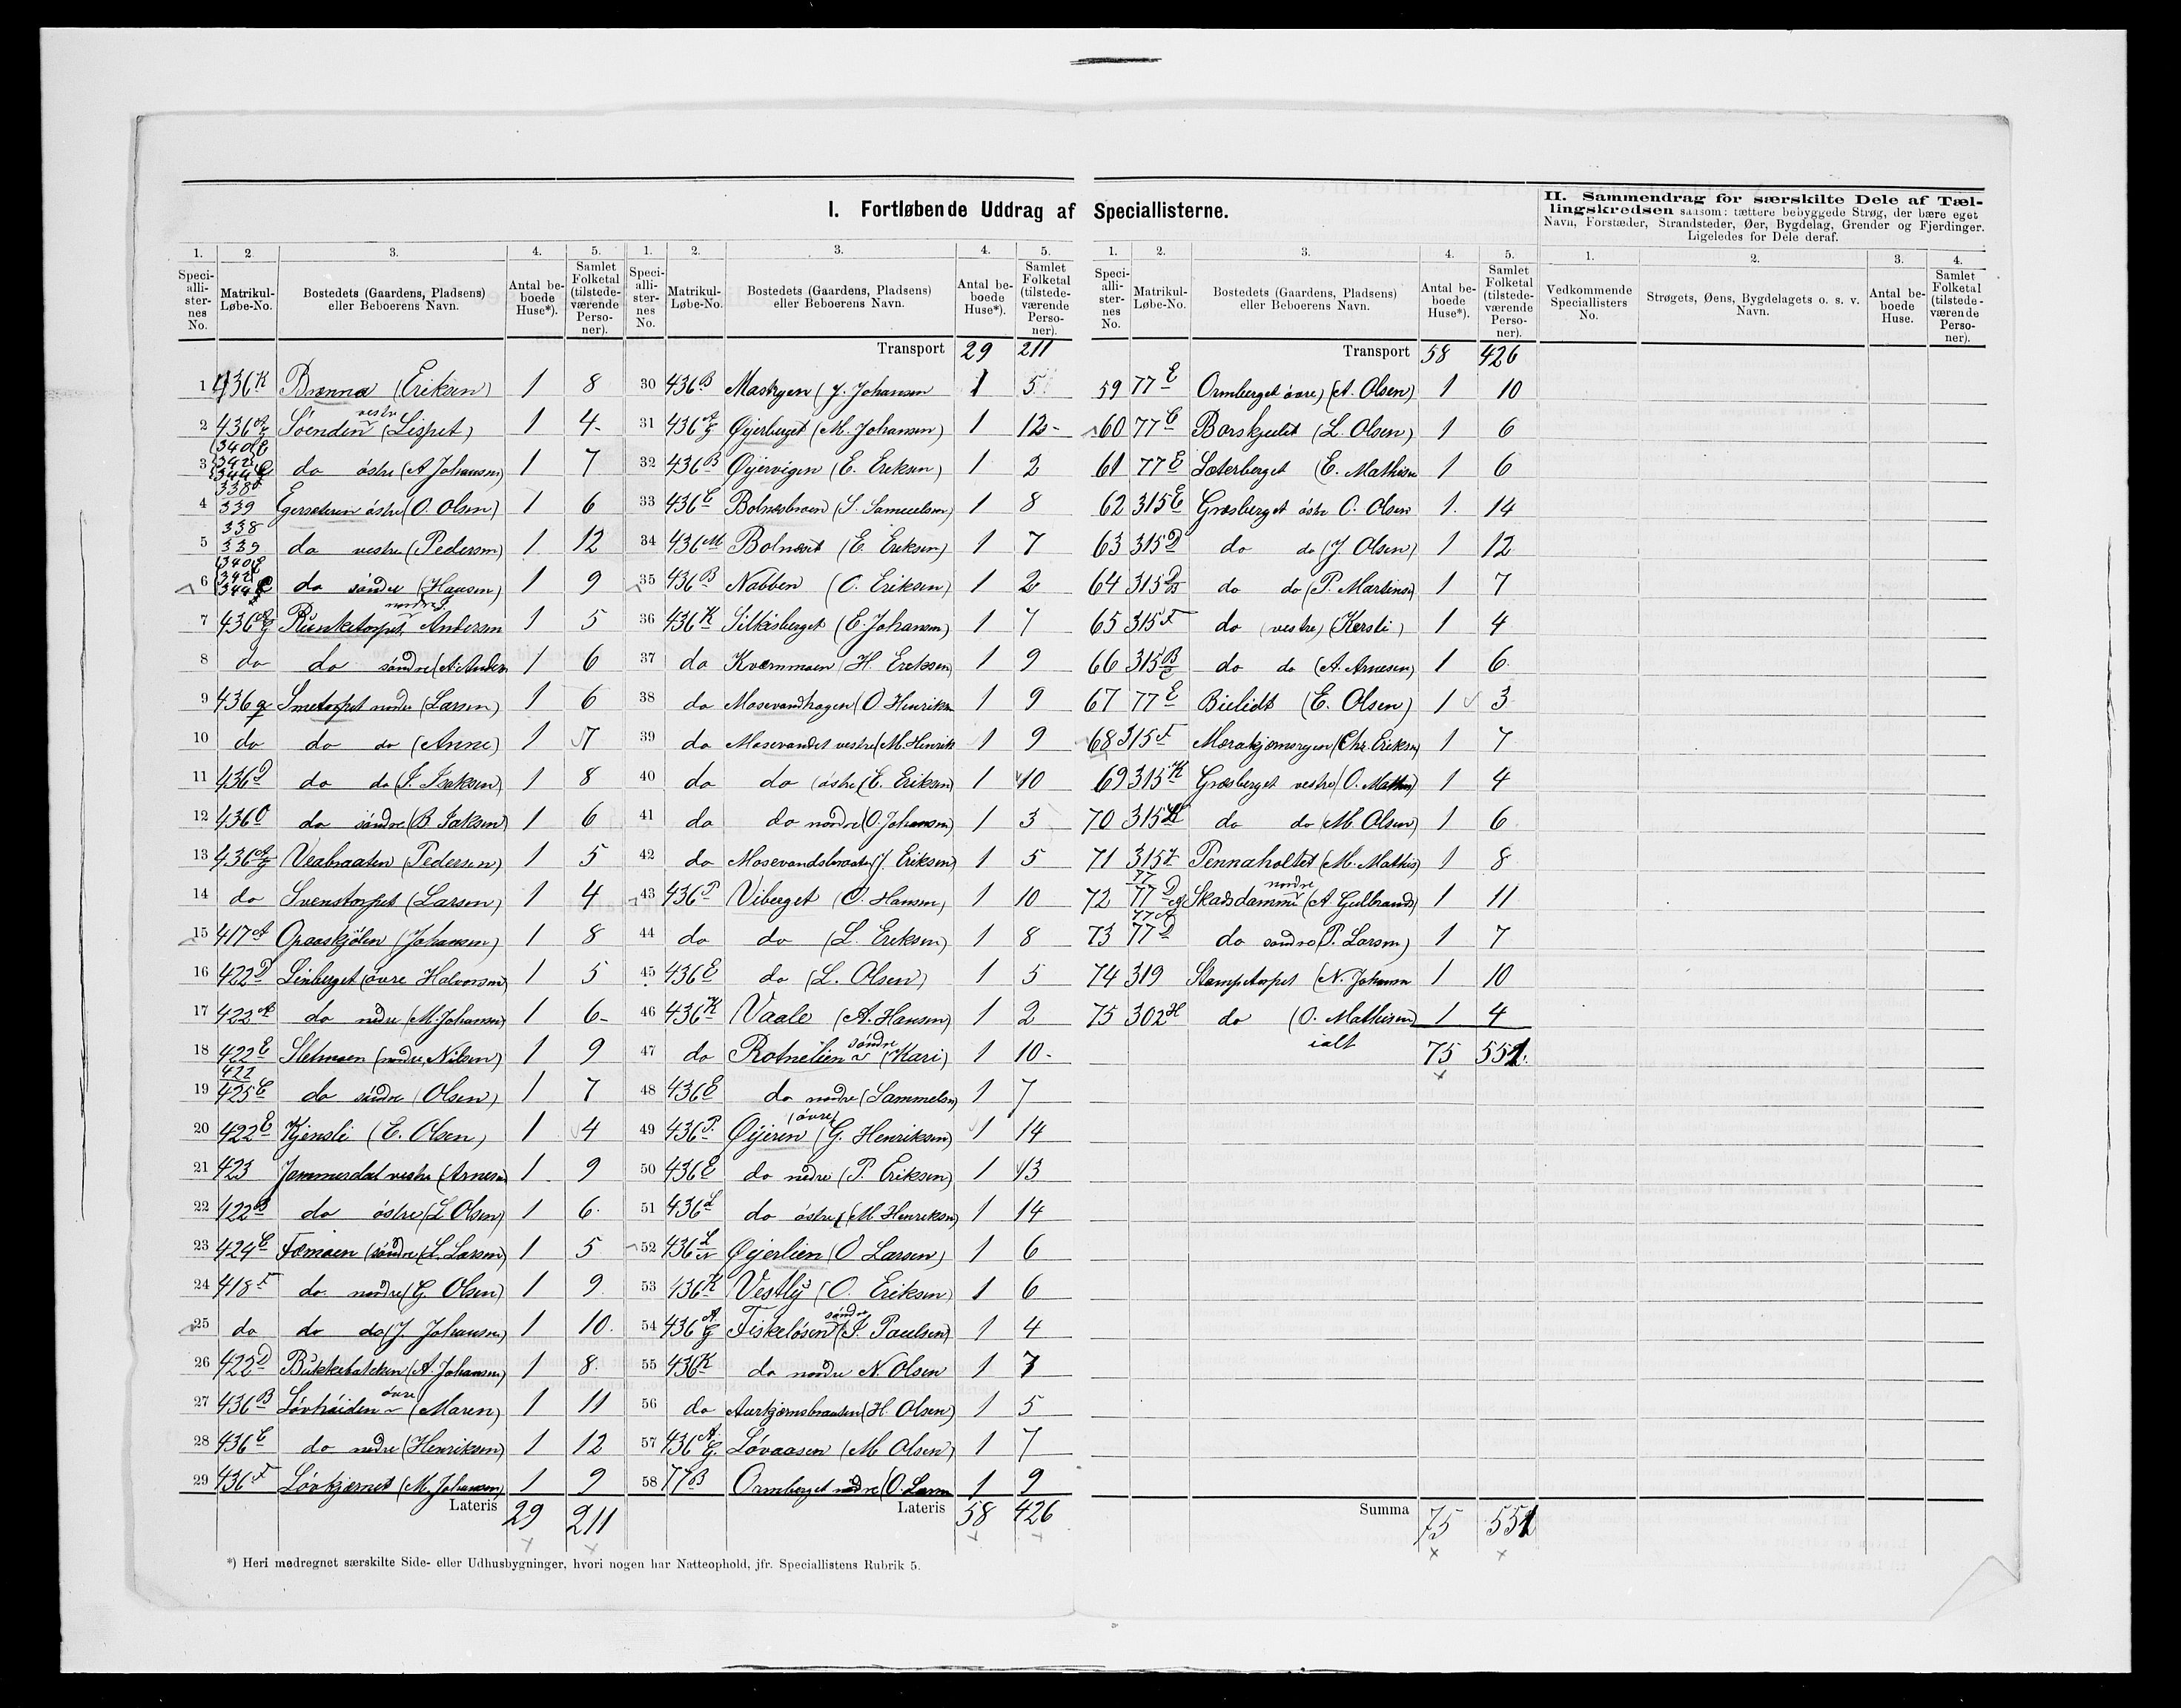 I. Fortløbende Uddrag af Speciallisterne.
II. Sammendrag for særskilte Dele af Tæl-
lingskredsen saasom: tættere bebyggede Strøg, der bære eget
Navn, Forstæder, Strandsteder, Øer, Bygdelag, Grender og Fjerdinger.
Ligeledes for Dele deraf.
1. 2. 3. 4. 5.
Speciallisternes No. Matrikul-Løbe-No. Bostedets (Gaardens, Pladsens) eller Beboerens Navn. Antal beboede Huse*). Samlet Folketal (tilstedeværende Personer).
1 436 K Brænna (Eriksen) 1 8
2 436 A G Söenden vestre (Lispet) 1 4
3 340 E 342 344 do östre (A Johansen) 1 7
4 338 339 Egersæteren östre (O. Olsen) 1 6
5 338 339 do vestre (Pedersen) 1 12
6 340 E 342 344 do söndre (Hansen) 1 9
7 436 Runketorpet nordre Andersen 1 5
8 do do söndre (A. Anders 1 6
9 436 g Smetorpet nordre (Larsen) 1 6
10 do do do (Anne) 1 7
11 436 D do do (J. Isaksen) 1 8
12 436 O do söndre (B Isaksen) 1 6
13 436 A G Veabraaten (Pedersen) 1 5
14 do Svenstorpet (Larsen) 1 4
15 417 A Opaaskjölen (Johansen) 1 8
16 422 D Linberget (övre Halvorsen) 1 5
17 422 B do nedre (M. Johansen) 1 6
18 422 E Sletmoen (nordre, Nilsen) 1 9
19 422 425 C do söndre (Olsen) 1 7
20 422 E Kjensli (E. Olsen) 1 4
21 423 Jammerdal vestre (Arnesen 1 9
22 422 B do östre (L Olsen) 1 6
23 424 C Tomoen (söndre) (L. Larsen) 1 5
24 418 F do nordre (G. Olsen) 1 9
25 do do do (J. Johansen) 1 10
26 422 D (A. Johansen) 1 8
27 436 B Lövhöiden övre (Maren) 1 11
28 436 C do nedre (Henriksen) 1 12
29 436 F Lövkjærnet (M. Johansen) 1 9
Lateris 29 211
1. 2. 3. 4. 5.
Speciallisternes No. Matrikul-Løbe-No. Bostedets (Gaardens, Pladsens) eller Beboerens Navn. Antal beboede Huse*). Samlet Folketal (tilstedeværende Personer).
Transport 29 211
30 436 B Mastryen (J. Johansen 1 5
31 436 A G Øyerberget (M. Johansen) 1 12
32 436 B Øyervigen (E. Eriksen) 1 2
33 436 C Bolnesbraen (S. Samuelsen) 1 8
34 436 M Bolneset (E. Eriksen) 1 7
35 436 B Nabben (O. Eriksen) 1 2
36 436 K Silkisberget (E. Johansen) 1 7
37 do Kværnmoen (H. Eriksen) 1 9
38 do Mosevandhagen (O Henriksen 1 9
39 do Mosevandet vestre (M. Henriks 1 9
40 do do östre (E. Eriksen) 1 10
41 do do nordre (O. Johansen) 1 3
42 do Mosevandsbraaten (J. Eriksen) 1 5
43 436 P Viberget (O. Hansen) 1 10
44 do do (L. Eriksen) 1 8
45 436 E do (L. Olsen) 1 5
46 436 K Vaale (A. Hansen) 1 2
47 do Rotnelien söndre (Kari) 1 10
48 436 E do nordre (Sammelsen) 1 7
49 436 P Øyeren (övre) (G. Henriksen) 1 14
50 436 E do nedre (P. Eriksen) 1 13
51 436 L do östre (M Henriksen) 1 14
52 436 L N Øyerlien (O Larsen) 1 6
53 436 K Vestly (O. Eriksen) 1 6
54 436 A G Fiskelösen söndre (P. Paulsen) 1 4
55 436 K do nordre N. Olsen 1 7
56 do Aurkjærnsbraaten (H. Olsen) 1 5
57 436 A G. Lövaasen (M Olsen) 1 7
58 77 B Ormberget nedre (O. Larsen 1 9
Lateris 58 426
1. 2. 3. 4. 5.
Speciallisternes No. Matrikul-Løbe-No. Bostedets (Gaardens, Pladsens) eller Beboerens Navn. Antal beboede Huse*). Samlet Folketal (tilstedeværende Personer).
Transport 58 426
59 77 E Ormberget övre) (A. Olsen) 1 10
60 77 C Borskjulet (L. Olsen) 1 6
61 77 E Sæterberget (E. Mathisen 1 6
62 315 E Grosberget östre O. Olsen 1 14
63 315 D do do (J. Olsen) 1 12
64 315 D do do (P. Martinsen) 1 7
65 315 F do (vestre) (Kersti) 1 4
66 315 B do do (A. Arnesen) 1 6
67 77 E Bielidt (E. Olsen) 1 3
68 315 F (Chr. Eriksen) 1 7
69 315 K Grosberget vestre (O. Mathis) 1 4
70 315 K do do (M. Olsen) 1 6
71 315 Pennaholtet (M. Mathis) 1 8
72 77 77 D Skadsdammen nordre (A. Gulbrands) 1 11
73 77 A 77 D do söndre (P. Larsen) 1 7
74 319 Stampetorpet (N. Johansen 1 10
75 302 H do (O. Mathisen) 1 4
ialt 75 551
Summa 75 551
1. 2. 3. 4.
Vedkommende Speciallisters No. Strøgets, Øens, Bygdelagets o. s. v. Navn. Antal beboede Huse. Samlet Folketal (tilstedeværende Personer).
*) Heri medregnet særskilte Side- eller Udhusbygninger, hvori nogen har Natteophold, jfr. Speciallistens Rubrik 5.